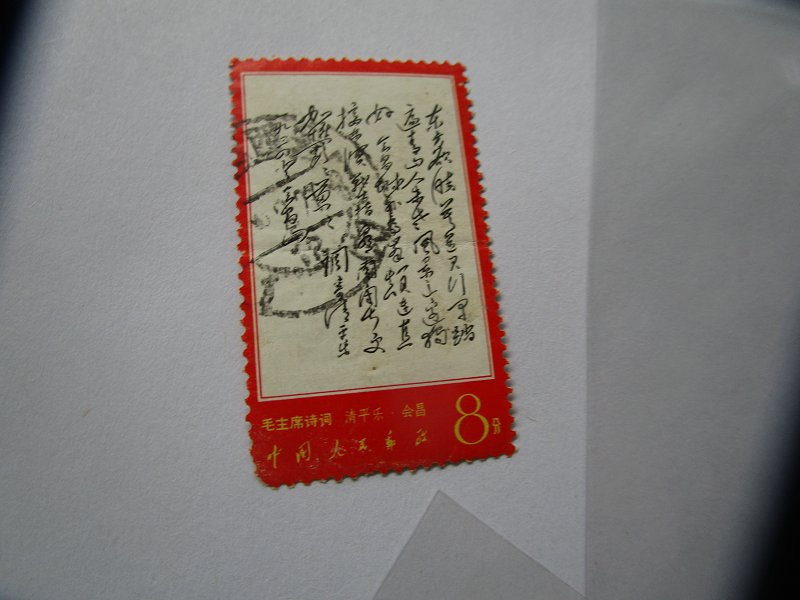 东方欲晓莫道君行早踏
遍青山人未老风景这边独
好会昌城外高峰颠连直
接东溟战士指看南粤更
调寄清平乐
毛主席诗词 清平乐·会昌
中国人民邮政
8分